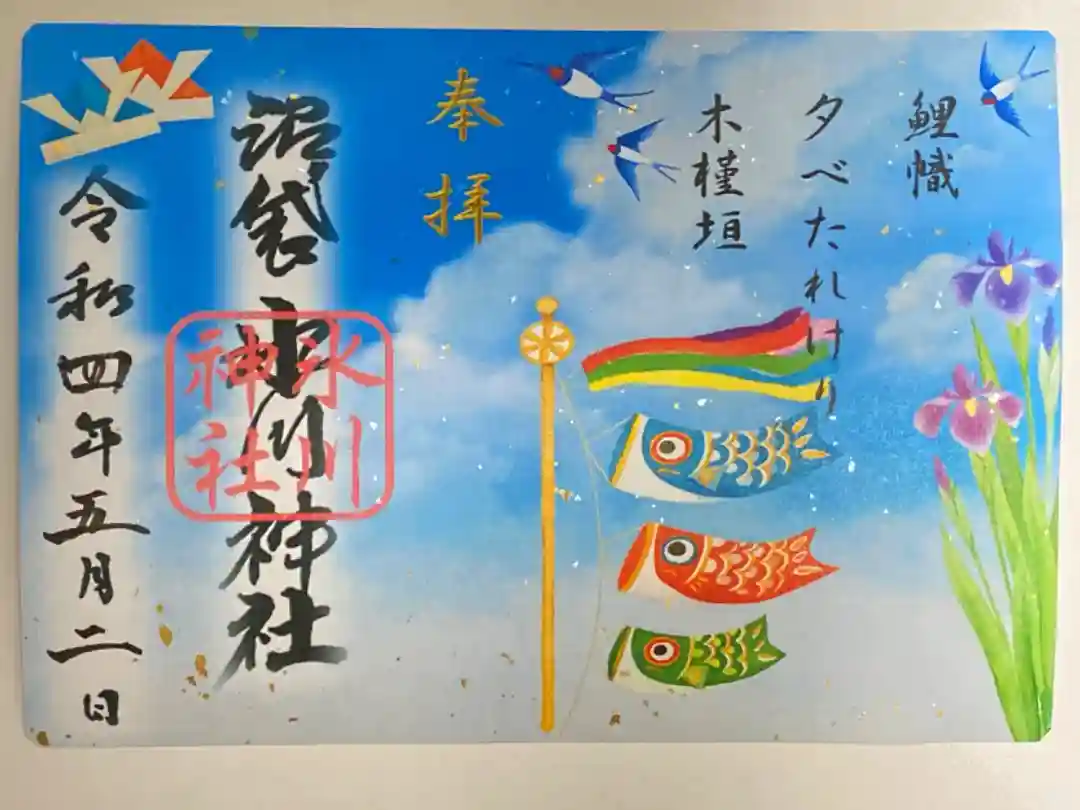 鯉幟
夕べたれけり
木槿垣
奉拝
沼袋氷川神社
氷川
神社
令和四年五月二日